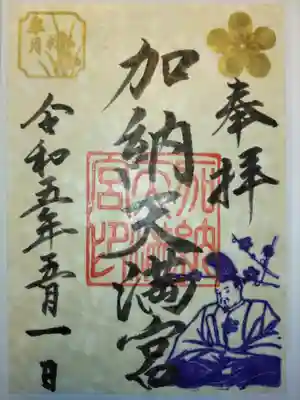 奉拝
加納天満宮
加納天満宮印
令和五年五月一日
皐月